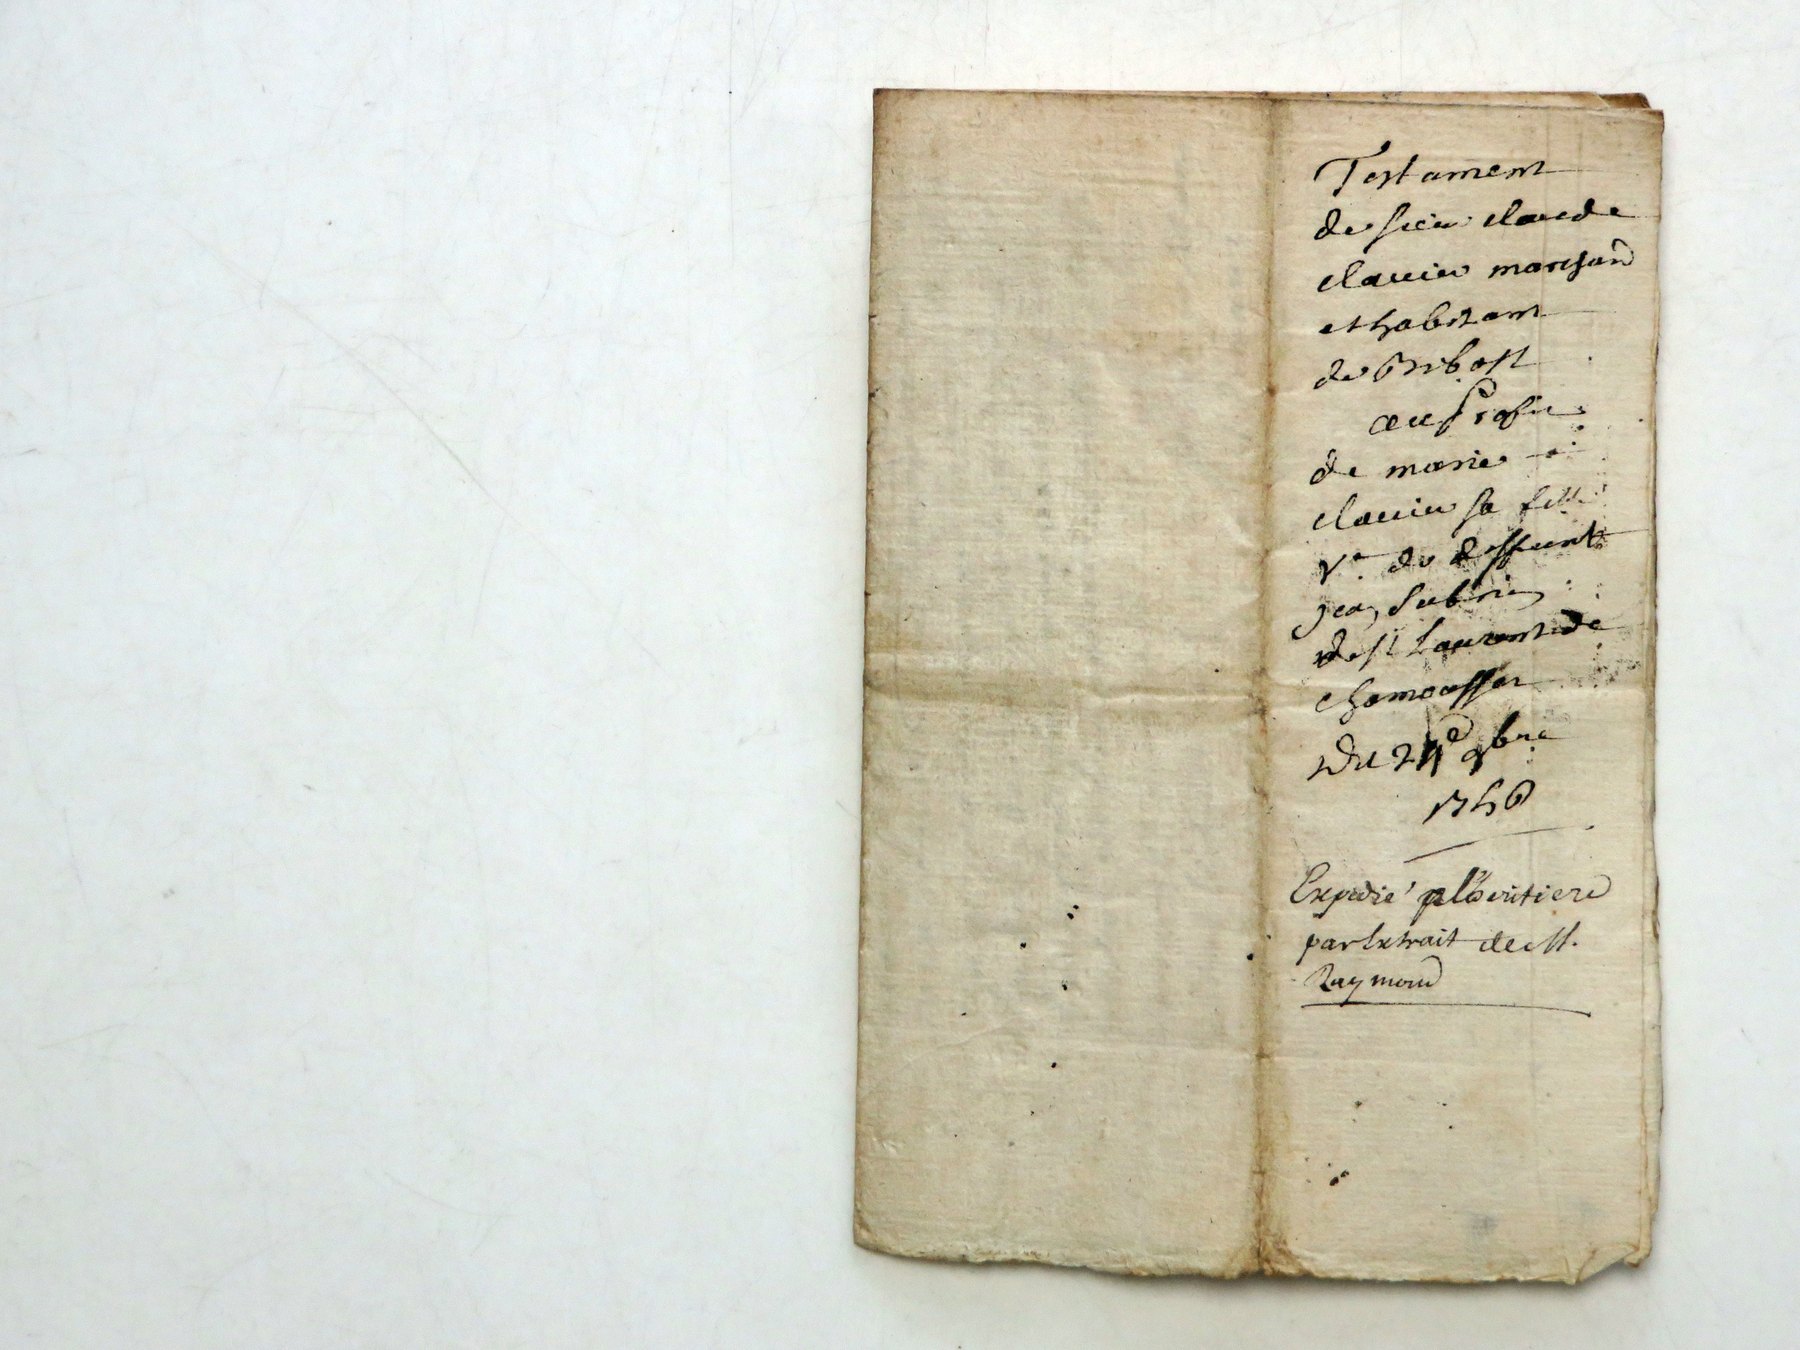 Testament
de sieur claude
clavier marchand
et habitant
de Bribost
au Profit
de marie
clavier sa fille
Ve de deffunt
jean
de st Laurent de
chamousset
Du 9bre
Expedié
par Extrait de M.
Raymond